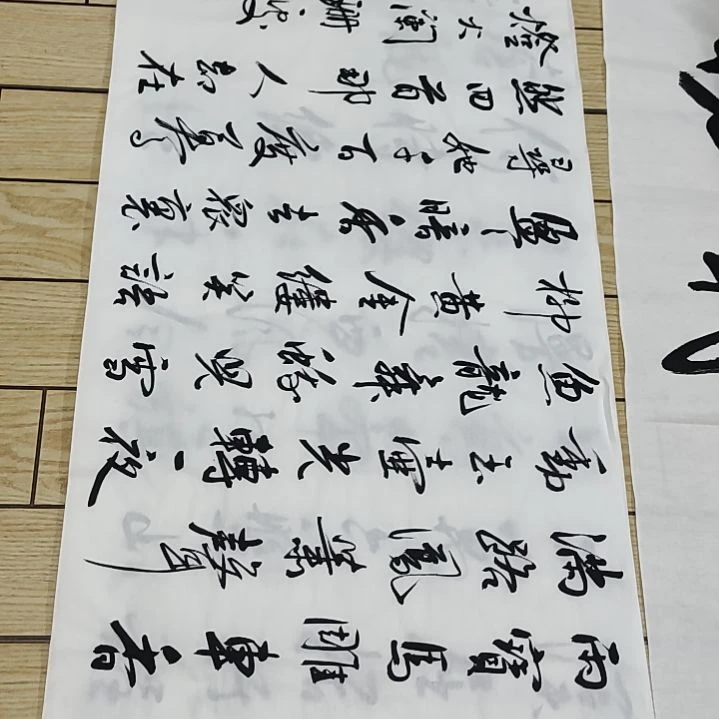 雨寶馬雕車香
滿路鳳簫聲
動玉壺光轉一夜
魚龍舞蛾兒雪
柳黃金縷笑語
盈盈暗香去眾裏
尋他千百度驀
然回首那人却在
燈火闌珊處